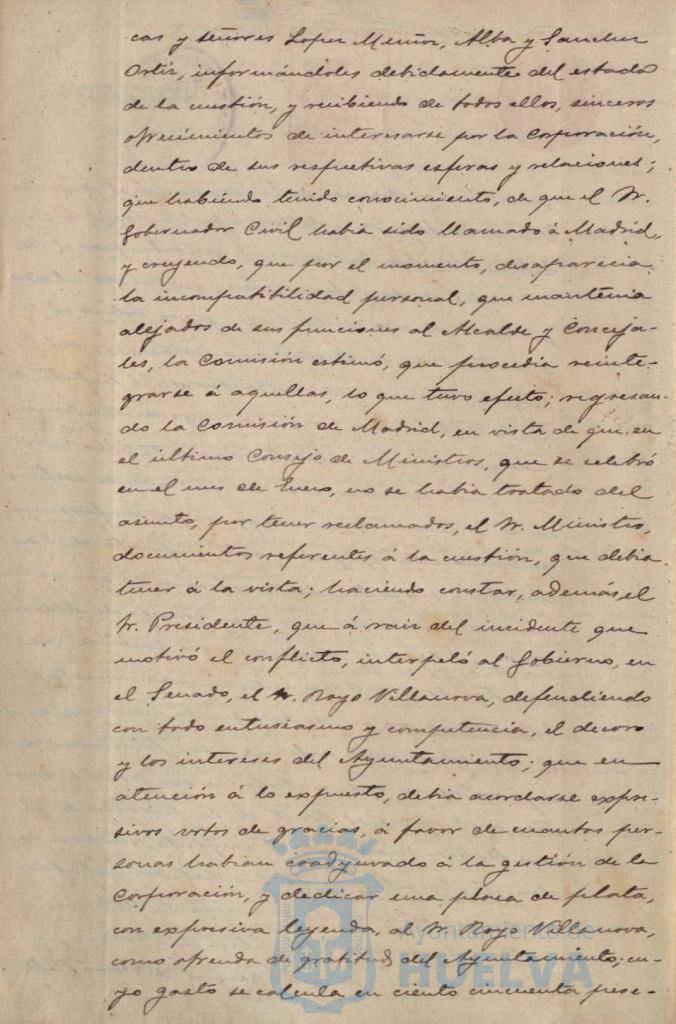 cas y señores Lopez Muñoz, Alba y Sanchez
Ortiz, informándoles debidamente del estado
de la cuestión, y recibiendo de todos ellos, sinceros
ofrecimientos de interesarse por la Corporación,
dentro de sus respectivas esferas y relaciones;
que habiendo tenido conocimiento, de que el Sr.
Gobernador Civil habia sido llamado á Madrid,
y creyendo, que por el momento, desaparecia
la incompatibilidad personal, que mantenia
alejados de sus funciones al Alcalde y Conceja-
les, la Comisión estimó, que procedia reinte-
grarse á aquellas, lo que tuvo efecto; regresan-
do la Comisión de Madrid, en vista de que en
el último Consejo de Ministros, que se celebró
en el mes de Enero, no se habia tratado del
asunto, por tener reclamados, el Sr. Ministro,
documentos referentes á la cuestión, que debia
tener á la vista; haciendo constar, además, el
Sr. Presidente, que á raiz del incidente que
motivó el conflicto, interpeló al Gobierno, en
el Senado, el Sr. Royo Villanova, defendiendo
con todo entusiasmo y competencia, el decoro
y los intereses del Ayuntamiento; que en
atención á lo expuesto, debia acordarse expre-
sivos votos de gracias, á favor de cuantas per-
sonas habian coadyuvado á la gestión de la
Corporación, y dedicar una placa de plata,
con expresiva leyenda, al Sr. Royo Villanova,
como ofrenda de gratitud del Ayuntamiento; cu-
yo gasto se calcula en ciento cincuenta pese-
Ayuntamiento de
HUELVA